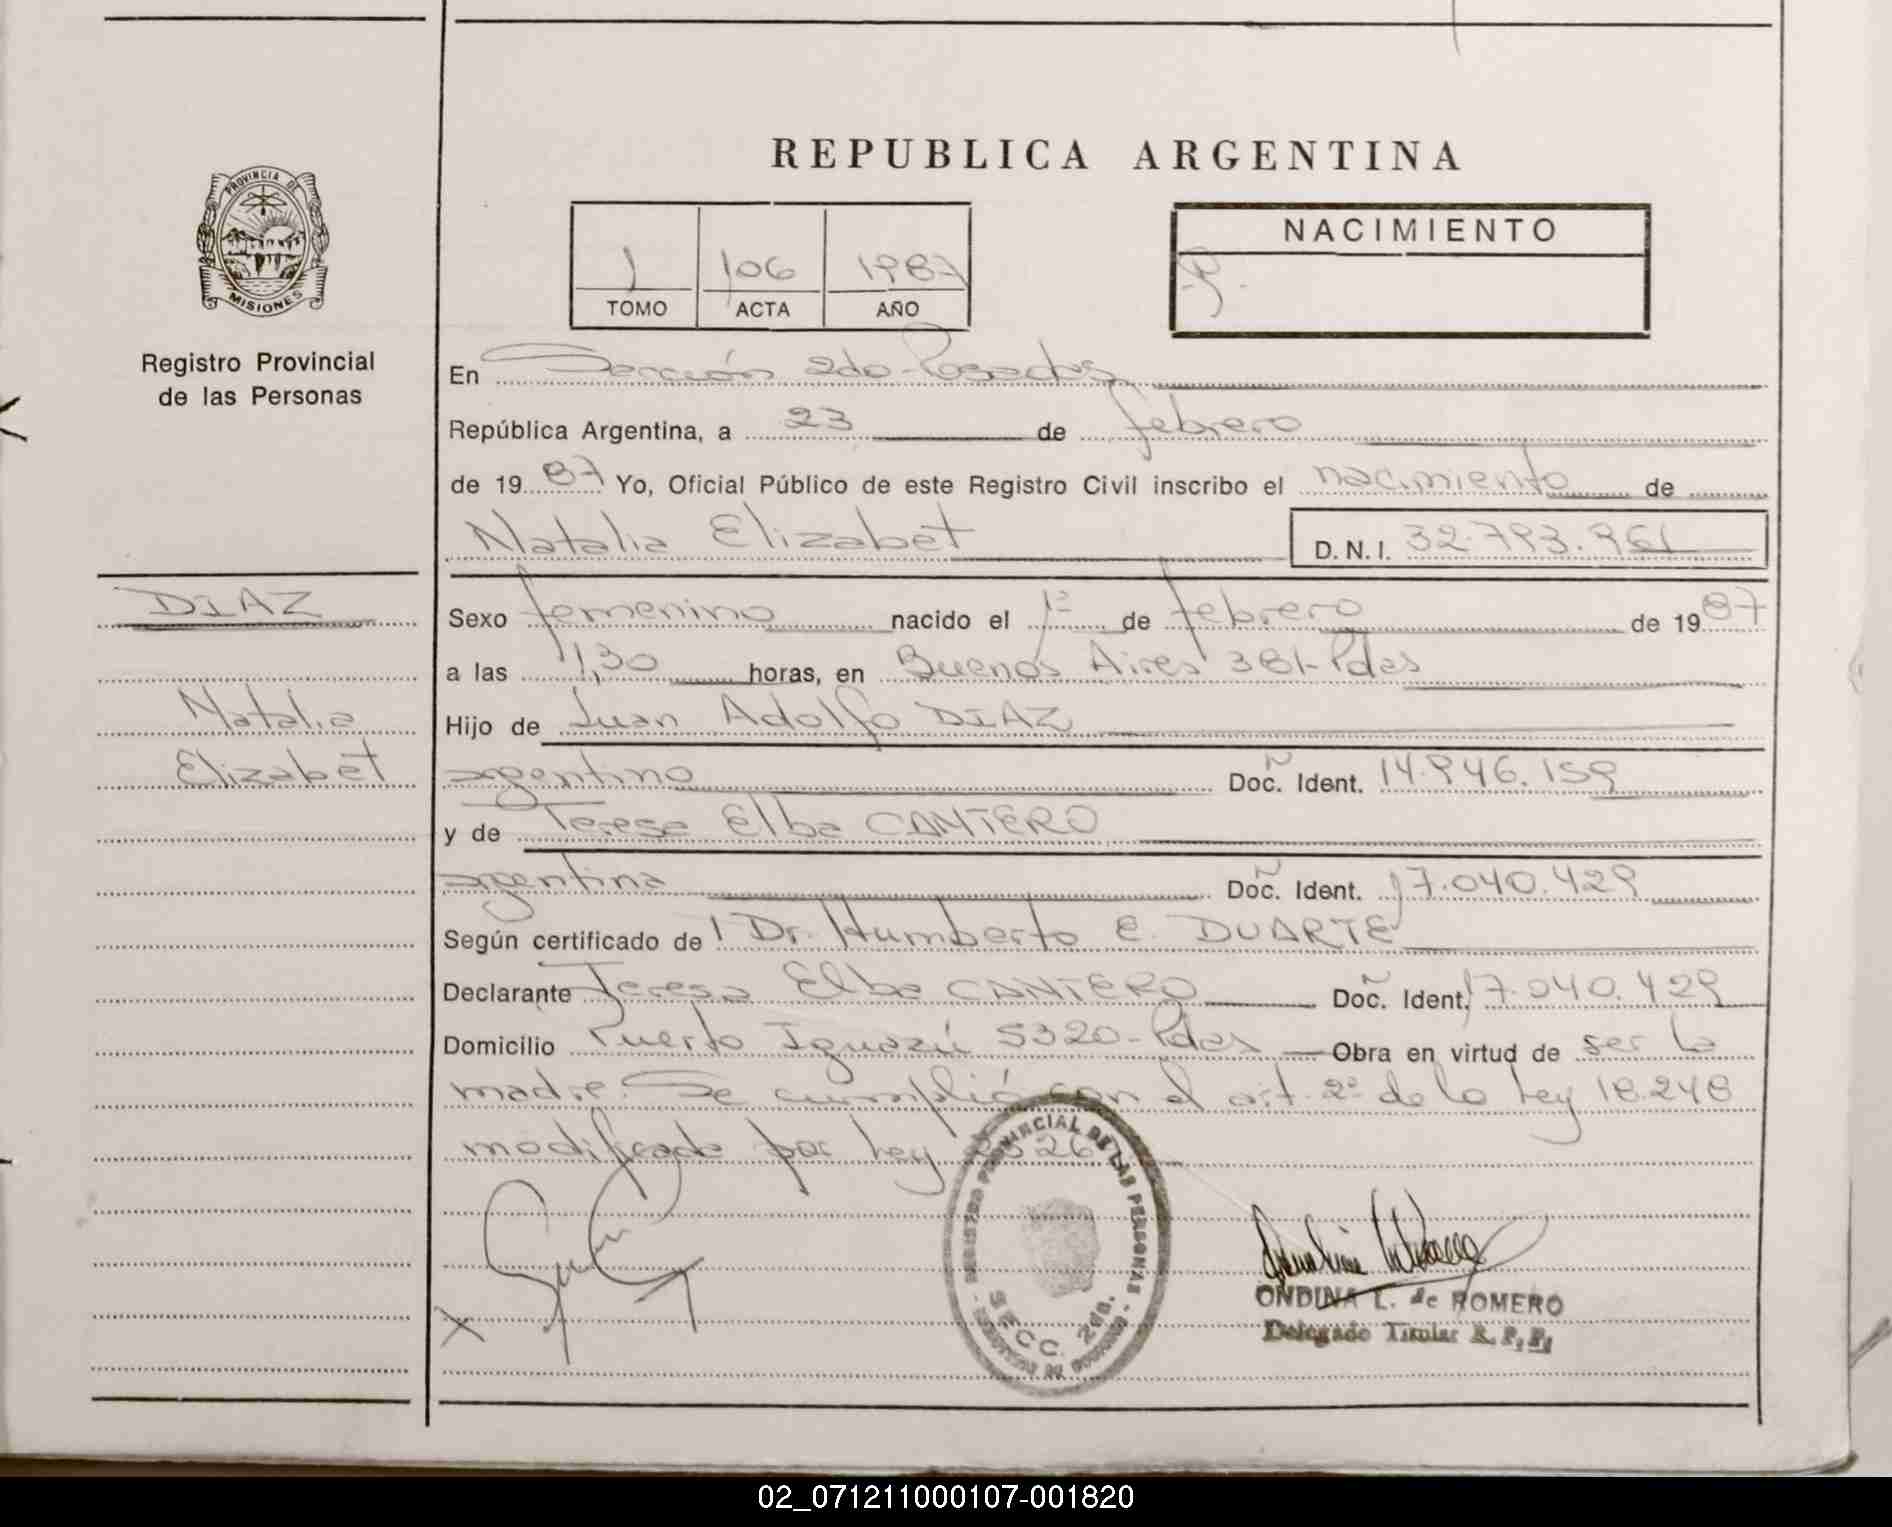 REPUBLICA ARGENTINA
PROVINCIA DE
MISIONES
Registro Provincial
de las Personas
1 106 1987
TOMO ACTA AÑO
NACIMIENTO
En Sección 2do-Posadas
República Argentina, a 23 de febrero
de 1987 Yo, Oficial Público de este Registro Civil inscribo el nacimiento de
Natalia Elizabet D.N.I. 32.793.961
DIAZ
Natalia
Elizabet
Sexo femenino nacido el 1º de febrero de 1987
a las 11,30 horas, en Buenos Aires 381-Pdas
Hijo de Juan Adolfo DIAZ
argentino Doc. Ident. 14.946.159
y de Teresa Elba CANTERO
argentina Doc. Ident. 17.040.429
Según certificado de l Dr. Humberto E. DUARTE
Declarante Teresa Elba CANTERO Doc. Ident. 17.040.429
Domicilio Puerto Iguazú 5320-Pdas Obra en virtud de ser la
madre. Se cumplió con el art. 2º de la Ley 18.248
modificada por Ley
REGISTRO PROVINCIAL DE LAS PERSONAS
SECC. 2da.
ONDINA L. de ROMERO
Delegado Titular R. P. P.
02_071211000107-001820